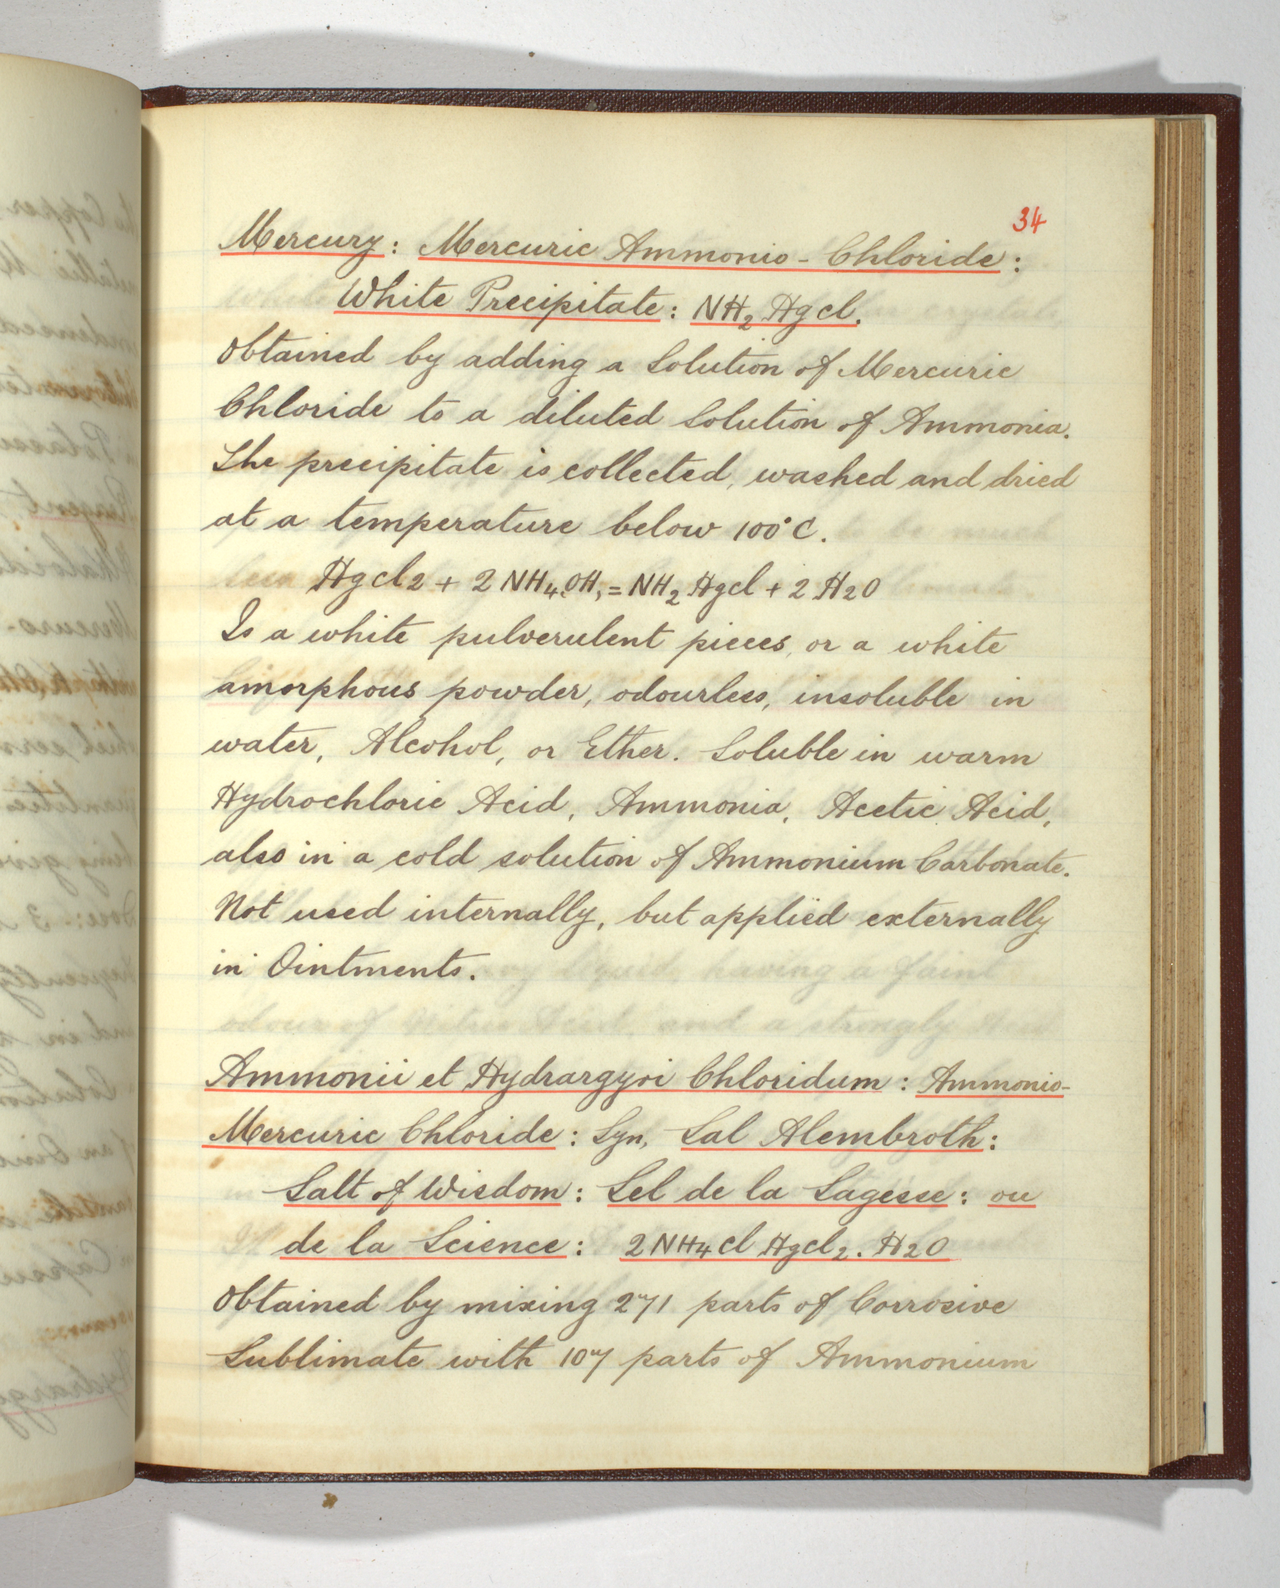 34
Mercury: Mercuric Ammonio-Chloride:
White Precipitate: NH2 Hgcl.
Obtained by adding a Solution of Mercuric
Chloride to a diluted Solution of Ammonia.
The precipitate is collected, washed and dried
at a temperature below 100°C.
Hgcl2 + 2 NH4.OH, = NH2 Hgcl + 2 H2O
Is a white pulverulent pieces, or a white
amorphous powder, odourless, insoluble in
water, Alcohol, or Ether. Soluble in warm
Hydrochloric Acid, Ammonia, Acetic Acid,
also in a cold solution of Ammonium Carbonate.
Not used internally, but applied externally
in Ointments.
Ammonii et Hydrargyri Chloridum: Ammonio-
Mercuric Chloride: Syn, Sal Alembroth:
Salt of Wisdom: Sel de la Sagesse: ou
de la Science: 2 NH4 cl Hgcl2. H2O
Obtained by mixing 271 parts of Corrosive
Sublimate with 107 parts of Ammonium